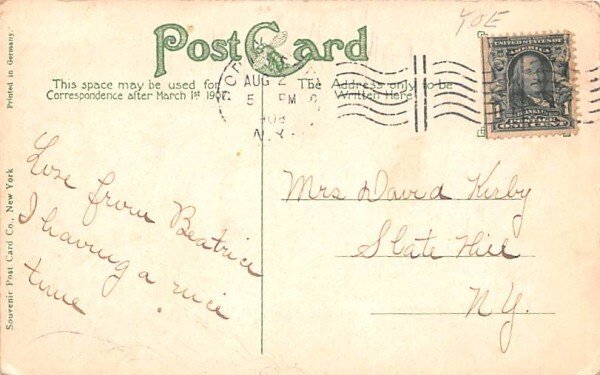 Post Card
YOE
Printed in Germany.
This space may be used for
Correspondence after March 1st 1907.
The Address only to be
Written Here
AUG 2
5 PM
N.Y.
UNITED STATES OF
AMERICA
Love from Beatrice
I having a nice
time
Mrs David Kirby
Slate Hill
N.Y.
Souvenir Post Card Co., New York